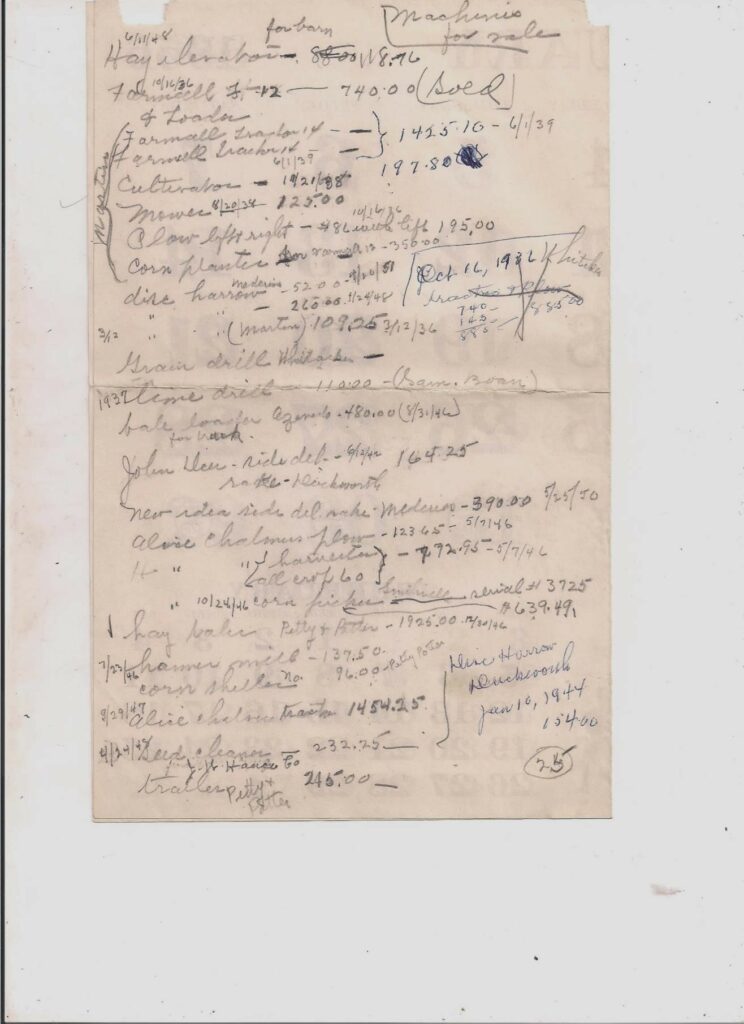 Machines
for sale
6/11/48 for barn
Hay elevator - 118.76
10/16/36
Farmall F-12 — 740.00 (Sold)
& Loader
Farmall Tractor 14 — } 1425.10 - 6/1/39
Farmall Tractor 14 —
6/1/39 197.80
Cultivator -
Mower 8/20/38 - 125.00
10/16/36
Plow left & right - with lift 195.00
Corn planter
disc harrow - 52.00 -
Oct 16, 1936
tractor & plow 885.00
740-
145
885
- 260.00
3/12 " " (Martin) 109.25 3/12/36
Grain drill —
1937 Lime drill - 110.00 - (Sam. Boan)
bale loader - 480.00 (8/31/46)
for truck.
John Deer - side del - 164.25
rake - Duckworth
New idea side del. rake - - 390.00 5/25/50
Alice Chalmus plow - 123.65 - 5/7/46
" " { harvester } - 772.95 - 5/7/46
all crop 60
" 10/24/46 corn picker serial # 3725
$639.49
hay baler Petty & Potter - 1925.00
7/23/46 hammer mill - 137.50
corn sheller no. 96.00 - Petty Potter
Disc Harrow
Duckworth
Jan 10, 1944
154.00
9/29/47 Alice chalmus tractor 1454.25
4/24/47 Seed cleaner — 232.25 —
trailer Petty & 245.00 —
Potter
25